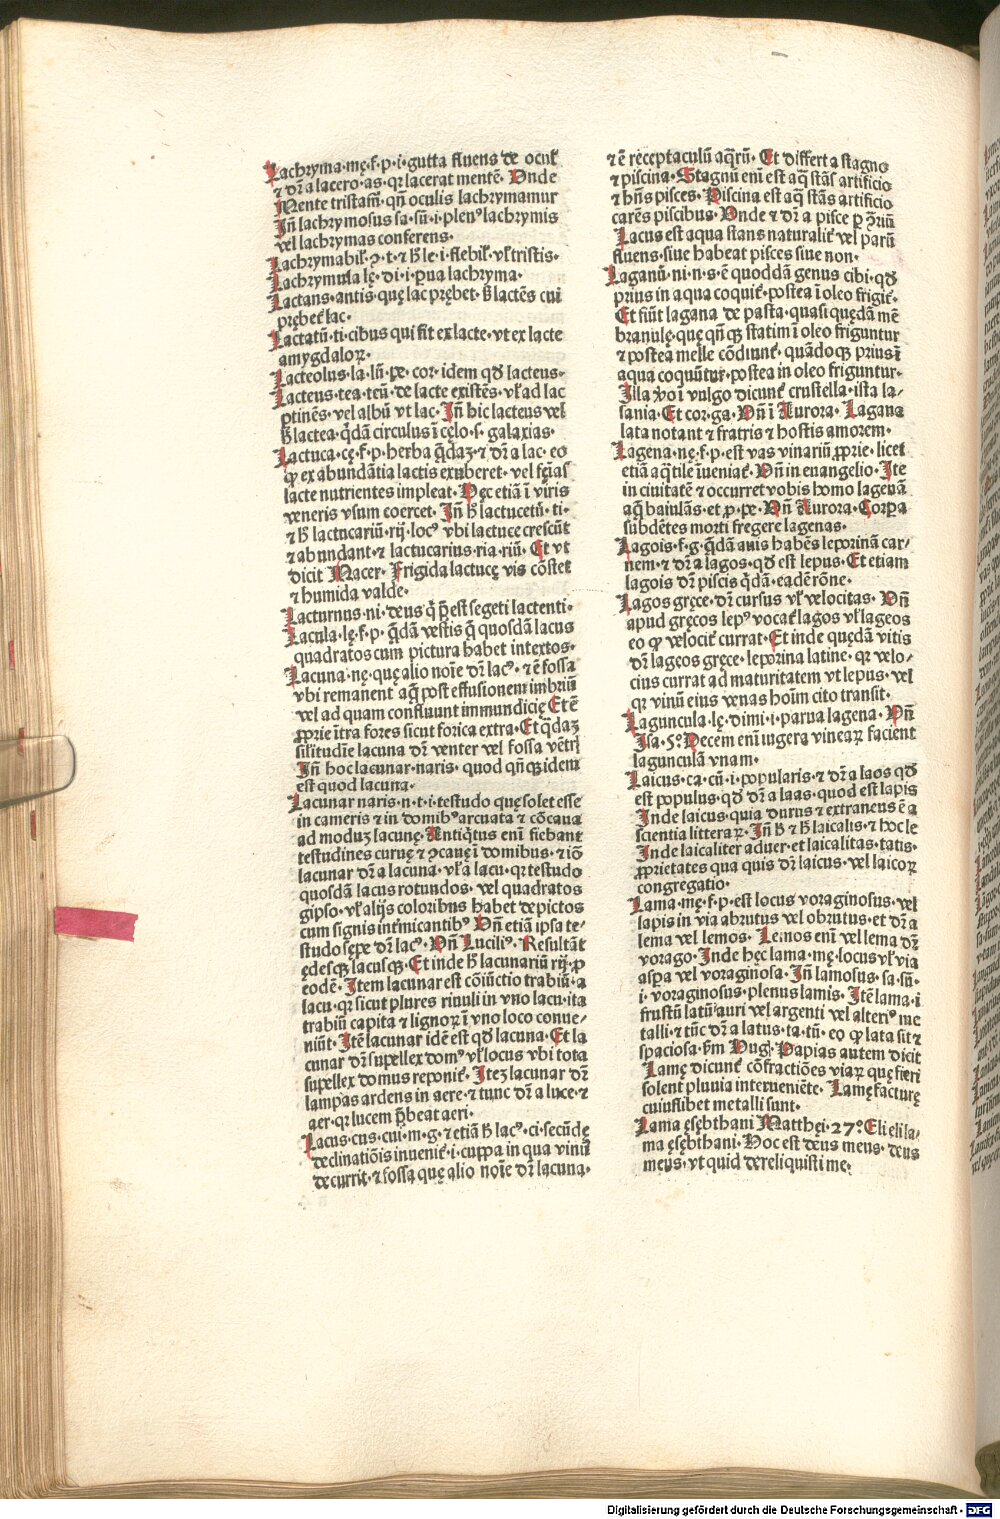 Lachryma·mę·f·p·i·gutta fluens de ocuł
⁊ dr̄ a lacero·as·qr lacerat mentē· Unde
Mente tristam̄· qn̄ oculis lachrymamur
Jn̄ lachrymosus sa·sū·i·plenꝰ lachrymis
vel lachrymas conferens·
Lachrymabił·ꝯ·t·⁊ h̄ le·i·flebił·vł tristis·
Lachrymula lę·di·i·ꝑua lachryma·
Lactans·antis·quę lac prębet· s̄ lactēs cui
prębet̄ lac·
Lactatū·ti·cibus qui fit ex lacte·vt ex lacte
amygdaloꝝ·
Lacteolus·la·lū·pe·cor·idem qd̄ lacteus·
Lacteus·tea·teū·de lacte existēs·vł ad lac
ꝑtinēs·vel albū vt lac· Jn̄ hic lacteus vel
h̄ lactea·q̄dā circulus ī cęlo·s·galaxias·
Lactuca·cę·f·p·herba q̄daꝫ·⁊ dr̄ a lac·eo
ꝙ ex abundātia lactis exuberet·vel fęīas
lacte nutrientes impleat· Hęc etiā ī viris
veneris vsum coercet· Jn̄ h̄ lactucetū·ti·
⁊ h̄ lactucariū·rij·locꝰ vbi lactuce crescūt
⁊ abundant·⁊ lactucarius·ria·riū· Et vt
dicit Macer· Frigida lactucę vis cōstet
⁊ humida valde·
Lacturnus·ni·deus q̄ p̄est segeti lactenti·
Lacula·lę·f·p·q̄dā vestis q̄ quosdā lacus
quadratos cum pictura habet intextos·
Lacuna·nę·quę alio noīe dr̄ lacꝰ·⁊ ē fossa
vbi remanent aq̄ post effusionem imbriū
vel ad quam confluunt immundicię Et ē
ꝓprie īntra fores sicut forica extra· Et q̄daꝫ
silitudīe lacuna dr̄ venter vel fossa vētrꝭ
Jn̄ hoc lacunar·naris·quod qn̄qꝫ idem
est quod lacuna·
Lacunar naris·n·t·i·testudo quę solet esse
in cameris ⁊ in domibꝰ arcuata ⁊ cōcaua
ad moduꝫ lacunę· Antiq̄tus enī fiebant
testudines curuę ⁊ ꝯcauę ī domibus·⁊ iō
lacunar dr̄ a lacuna·vł a lacu·qr testudo
quosdā lacus rotundos·vel quadratos
gipso·vł alijs coloribus habet depictos
cum signis intēmicantibꝰ Un̄ etiā ipsa te-
studo sępe dr̄ lacꝰ· Un̄ Luciliꝰ· Resultāt
ędesqꝫ lacusqꝫ· Et inde h̄ lacunariū rij·ꝓ
eodē· Jtem lacunar est cōiūctio trabiū·a
lacu·qr sicut plures riuuli in vno lacu·ita
trabiū capita ⁊ lignoꝝ ī vno loco conue-
niūt· Jtē lacunar idē est qd̄ lacuna· Et la
cunar dr̄ supellex domꝰ vł locus vbi tota
supellex domus reponit̄· Jteꝫ lacunar dr̄
lampas ardens in aere·⁊ tunc dr̄ a luce·⁊
aer·qr lucem p̄beat aeri·
Lacus·cus·cui·m·g·⁊ etiā h̄ lacꝰ·ci·secūdę
declinatiōis inuenit̄·i·cuppa in qua vinū
decurrit·⁊ fossa quę alio noīe dr̄ lacuna·
⁊ ē receptaculū aq̄rū· Et differt a stagno
⁊ piscina· Stagnū enī est aq̄ stās artificio
⁊ hn̄s pisces· Piscina est aq̄ stās artificio
carēs piscibus· Unde ⁊ dr̄ a pisce ꝑ ꝯ̄riū
Lacus est aqua stans naturalit̄ vel parū
fluens·siue habeat pisces siue non·
Laganū·ni·n·s·ē quoddā genus cibi·qd̄
prius in aqua coquit̄·postea ī oleo frigit̄·
Et fiūt lagana de pasta·quasi quędā mē
branulę·que qn̄qꝫ statim ī oleo friguntur
⁊ postea melle cōdiunt̄·quādoqꝫ prius ī
aqua coquūtur·postea in oleo friguntur·
Jlla v̄o ī vulgo dicunt̄ crustella·ista la-
sania· Et cor·ga· Un̄ ī Aurora· Lagana
lata notant ⁊ fratris ⁊ hostis amorem·
Lagena·nę·f·p·est vas vinariū ꝓprie·licet
etiā aq̄tile īueniat̄· Un̄ in euangelio· Jte
in ciuitatē ⁊ occurret vobis homo lagenā
aq̄ baiulās·et ꝓ·pe· Un̄ Aurora· Corpa
subdētes morti fregere lagenas·
Lagois·f·g·q̄dā auis habēs leporinā car-
nem·⁊ dr̄ a lagos·qd̄ est lepus· Et etiam
lagois dr̄ piscis q̄dā·eadē rōne·
Lagos gręce·dr̄ cursus vł velocitas· Un̄
apud gręcos lepꝰ vocat̄ lagos vł lageos
eo ꝙ velocit̄ currat· Et inde quędā vitis
dr̄ lageos gręce·leporina latine·qr velo-
cius currat ad maturitatem vt lepus·vel
qr vinū eius venas hoīm cito transit·
Laguncula·lę·dimi·i·parua lagena· Un̄
Jsa·5ꝰ Decem enī iugera vineaꝝ facient
lagunculā vnam·
Laicus·ca·cū·i·popularis·⁊ dr̄ a laos qd̄
est populus·qd̄ dr̄ a laas·quod est lapis
Jnde laicus·quia durus ⁊ extraneus ē a
scientia litteraꝝ· Jn̄ h̄ ⁊ h̄ laicalis·⁊ hoc le
Jnde laicaliter aduer·et laicalitas·tatis·
ꝓprietates qua quis dr̄ laicus·vel laicoꝝ
congregatio·
Lama·mę·f·p·est locus voraginosus·vel
lapis in via abrutus vel obrutus·et dr̄ a
lema vel lemos· Lemos enī vel lema dr̄
vorago· Jnde hęc lama·mę·locus vł via
aspa vel voraginosa· Jn̄ lamosus·sa·sū·
i·voraginosus·plenus lamis· Jtē lama·i
frustū latū auri vel argenti vel alteriꝰ me
talli·⁊ tūc dr̄ a latus·ta·tū·eo ꝙ lata sit ⁊
spaciosa·s̄m Hug̣· Papias autem dicit
Lamę dicunt̄ cōfractiōes viaꝝ quę fieri
solent pluuia interueniēte· Lamę facturę
cuiuslibet metalli sunt·
Lama ęsębthani Matthęi·27ꝰ· Eli eli la-
ma ęsębthani· Hoc est deus meus·deus
meus·vt quid dereliquisti me·
Digitalisierung gefördert durch die Deutsche Forschungsgemeinschaft - DFG